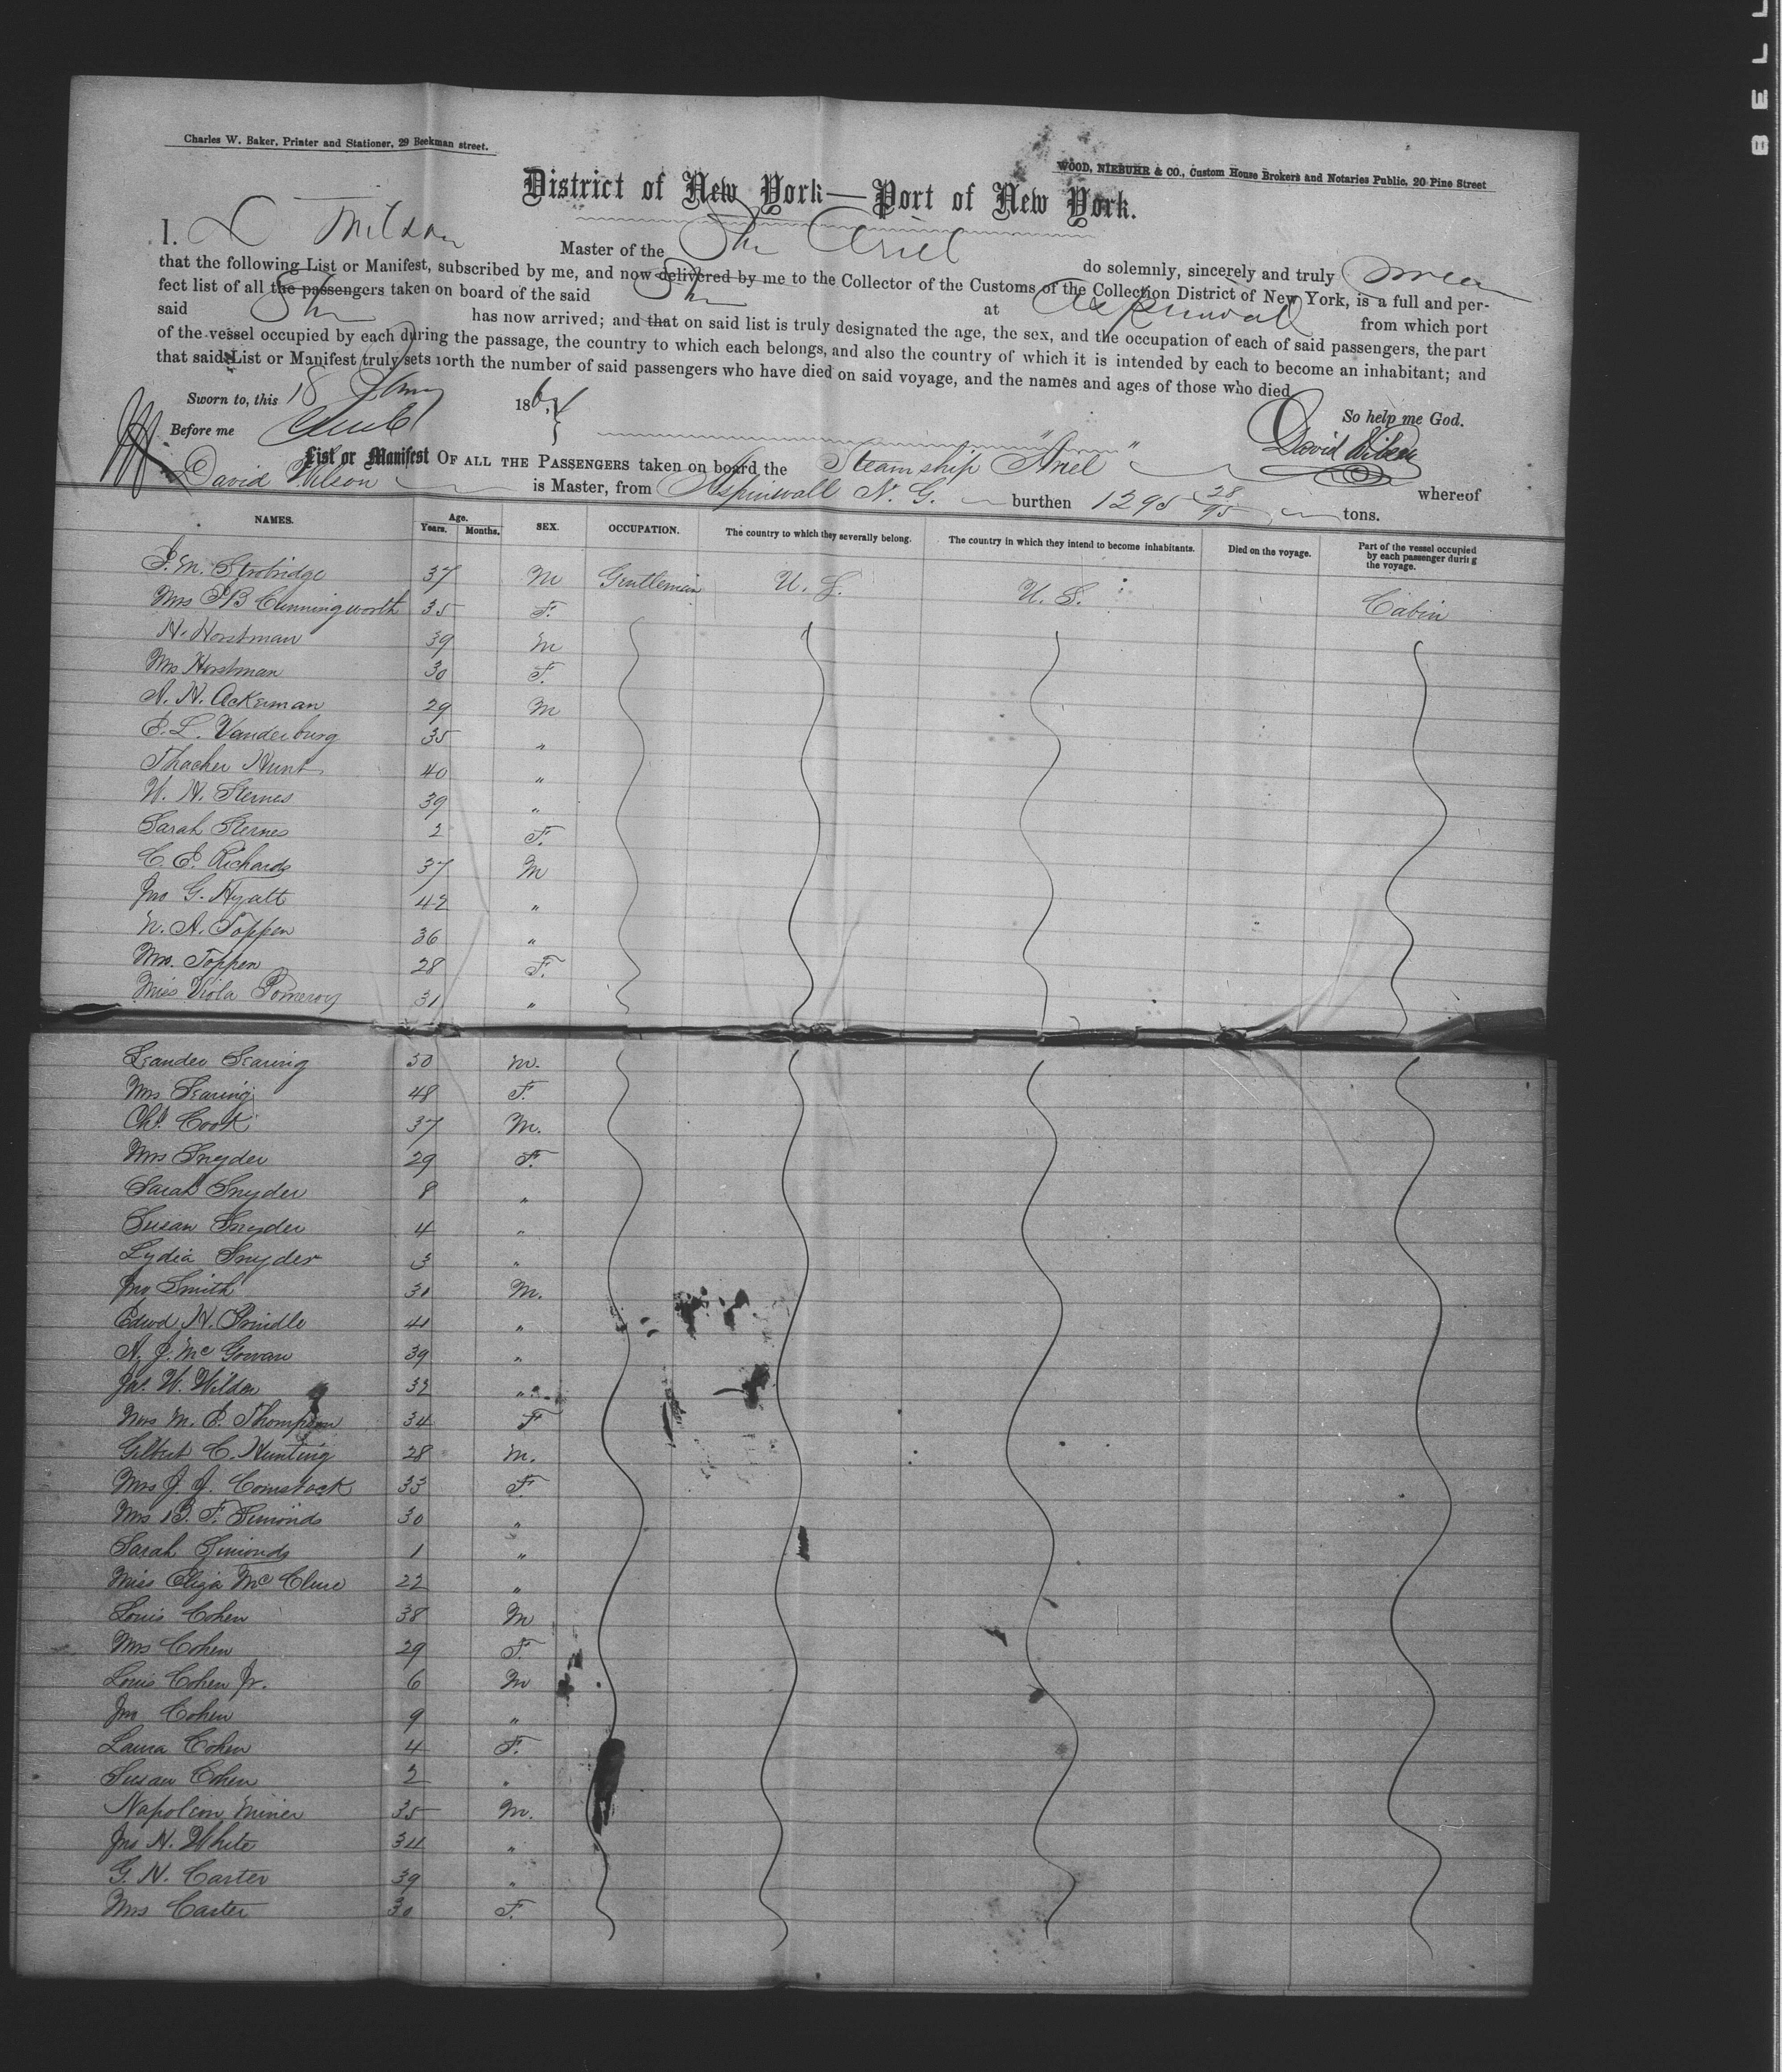 BELL
Charles W. Baker, Printer and Stationer, 29 Beekman street.
WOOD, NIEBUHR & CO., Custom House Brokers and Notaries Public, 20 Pine Street
District of New York—Port of New York.
I. D Wilson Master of the Str Ariel do solemnly, sincerely and truly swear
that the following List or Manifest, subscribed by me, and now delivered by me to the Collector of the Customs of the Collection District of New York, is a full and per-
fect list of all the passengers taken on board of the said Str at Aspinwall from which port
said Str has now arrived; and that on said list is truly designated the age, the sex, and the occupation of each of said passengers, the part
of the vessel occupied by each during the passage, the country to which each belongs, and also the country of which it is intended by each to become an inhabitant; and
that said List or Manifest truly sets forth the number of said passengers who have died on said voyage, and the names and ages of those who died.
Sworn to, this 18 Jany 1864 So help me God.
Before me David Wilson
List or Manifest OF ALL THE PASSENGERS taken on board the Steamship "Ariel" whereof
David Wilson is Master, from Aspinwall N. G. burthen 1295 28/95 tons.
NAMES. Age. Years. Months. SEX. OCCUPATION. The country to which they severally belong. The country in which they intend to become inhabitants. Died on the voyage. Part of the vessel occupied by each passenger during the voyage.
J. M. Strobridge 37 M Gentleman U. S. U. S. Cabin
Mrs J B Cunningworth 35 F.
H. Horstman 39 M
Mrs Horstman 30 F.
A. H. Ackerman 29 M
E. L. Vanderburg 35 "
Thacher Hunt 40 "
W. H. Sternes 39 "
Sarah Sternes 2 F.
C. E. Richards 37 M
Jno G. Hyatt 42 "
N. A. Toppen 36 "
Mrs. Toppen 28 F.
Miss Viola Pomeroy 31 "
Leander Searing 50 M.
Mrs Searing 48 F.
Chs. Cook 37 M.
Mrs Snyder 29 F.
Sarah Snyder 8 "
Susan Snyder 4 "
Lydia Snyder 3 "
Jno Smith 31 M.
Edwd H. Prindle 41 "
A. J. McGowan 39 "
Jas. W. Wilder 32 "
Mrs M. E. Thompson 34 F
Gilbert C. Hunting 28 M.
Mrs J. J. Comstock 33 F.
Mrs B. F. Simonds 30 "
Sarah Simonds 1 "
Miss Eliza McClure 22 "
Louis Cohen 38 M
Mrs Cohen 29 F.
Louis Cohen Jr. 6 M
Jno Cohen 9 "
Laura Cohen 4 F.
Susan Cohen 2 "
Napoleon Miner 35 M.
Jno H. White 34 "
G. N. Carter 39 "
Mrs Carter 30 F.